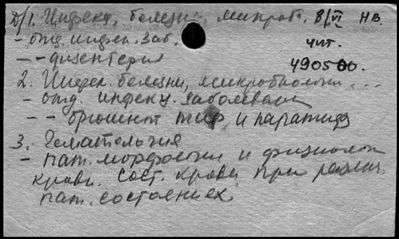 Д/1. Инфекц. болезни, микроб. 8/VI НВ.
- отд. инфек. заб. чит.
- - дизентерия 490500.
2. Инфек. болезни, микробиология ...
- отд. инфекц. заболевания
- - брюшной тиф и паратиф
3. Гематология
- пат. морфология и физиолог.
крови. Сост. крови при различ.
пат. состояниях